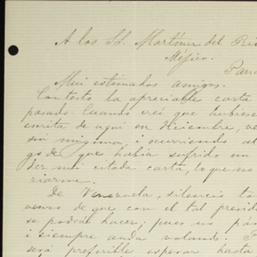 A los Sd. Martínez del Rí
Méjico.
Pana
Mui estimados amigos.
Contesto la apreciable carta
pasado. Cuando creí que hubiese
escrita de aquí en Diciembre, ve
sin ninguna, i ocurriendo al
go de que había sufrido un
der mi citada carta, lo que no
riarme.
De Venezuela, silencio to
veuro de que con el tal presid
se podrán hacer, pues un pá
i siempre anda volando. P
será preferible esperar hasta